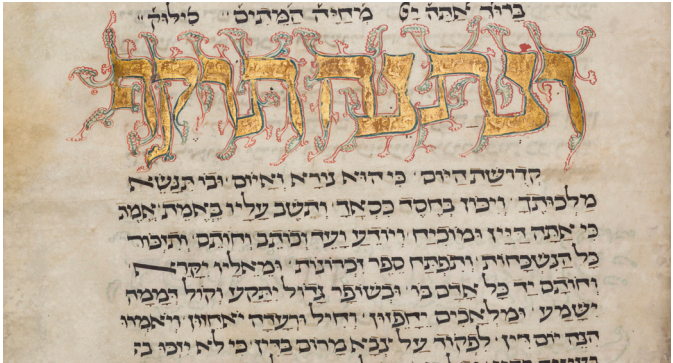 ברוך אתה יי מחיה המתים סילוק
ונתנה תוקף
קדושת היום כי הוא נורא ואיום ובו תנשא
מלכותך ויכון בחסד כסאך ותשב עליו באמת אמת
כי אתה דיין ומוכיח ויודע ועד וכותב וחותם ותזכור
כל הנשכחות ותפתח ספר זכרונות ומאליו יקרא
וחותם יד כל אדם בו ובשופר גדול יתקע וקול דממה
ישמע ומלאכים יחפזון וחיל ורעדה יאחזון ויאמרו
הנה יום דין לפקוד על צבא מרום בדין כי לא יזכו בה